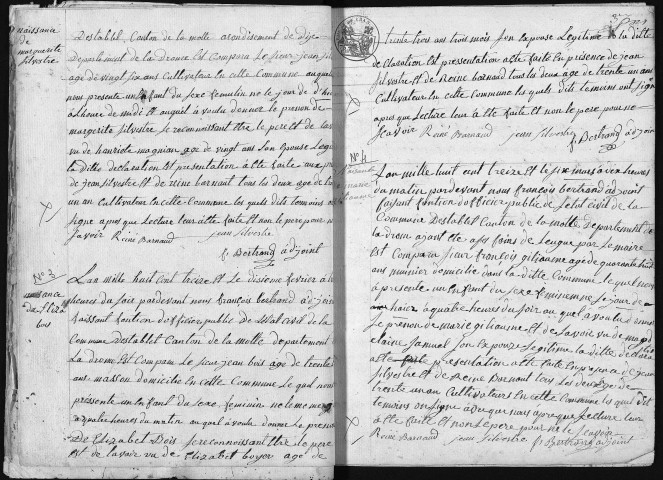 naissance
de
margueritte
silvestre
Destablet, Canton de la motte arondisement de die
Departement de la drome Est Comparu Le sieur jean sil
age de vingt six ans Cultivateur en cette Commune auquel
nous presente un Enfant du sexe femelin ne le jour de d'hier
a Lheure de midi Et auquel à voulu donner le prenon de
margerite silvestre se reconnoissant Etre le pere Et de lavoir
vu de hanriete magnian age de vingt ans son Epouse Legi
la ditte declaration Est presentation a Ete faite aux pre
de jean silvestre Et de réine barnaut tous les deux age de trente
un an Cultivateur En cette Commune les quels dits temoins ont
signe apres que Lecture leur a Ete faite Et non le pere pour ne
savoir Reiné Barnaud jean silvestre
f. Bertrand adjoint
No 3
naissance
de Eliza
bois
Lan mille huit Cent treize Et le disieme fevrier à
heures du soir pardevant nous françois bertrand adjoin
faissant fontion d'officier publique de letat Civil de la
Commune Destablet Canton de la motte departement
La drome Est Comparu Le sieur jean bois age de trente
ans masson domicilie en cette Commune Le quel nous
presente un Enfant du sexe feminin ne le meme
a quatre heures du matin au quel a voulu donner Le prenon
De Elizabet Bois se reconnoissant Etre le pere
Et de lavoir vu de Elizabet boyer age de
trente trois ans trois mois son Epouse Legitime Et la ditte
de Claration Est presentation a Ete faite En presence de jean
silvestre Et de Réine barnaud tous les deux age de trente un ans
Cultivateur En cette Commune les quels dits temoins ont signe
apres que Lecture leur a Ete faite Et non le pere pour ne
scavoir Reiné Barnaud jean silvestre
f. Bertrand adjoint
No 4
Lan mille huit Cent treize Et le six mars a dix heures
du matin pardevant nous françois bertrand adjoint
faisant fontion d'officier publique de letat Civil de la
Commune Destablet Canton de la motte Departement de
la drome
Est Comparu sieur françois giliaume age de quarante huit
ans munier domicilie dans la ditte Commune le quel nous
a presente un Enfant du sexe femeninne ne le jour de
hier a quatre heures du soir au quel a voulu donner
Le prenon de marie giliaume Et de lavoir vu de
claire jamuel son Epouze Legitime la ditte de claration
presentation a Ete faite En presence de jean
silvestre Et de Réine Barnaut tous les deux age de
trente un an Cultivateurs En cette Commune les quels dits
temoins on signe apres que lecture leur
a Ete faite Et non le pere pour ne le savoir
Reiné Barnaud jean silvestre f. Bertrand adjoint